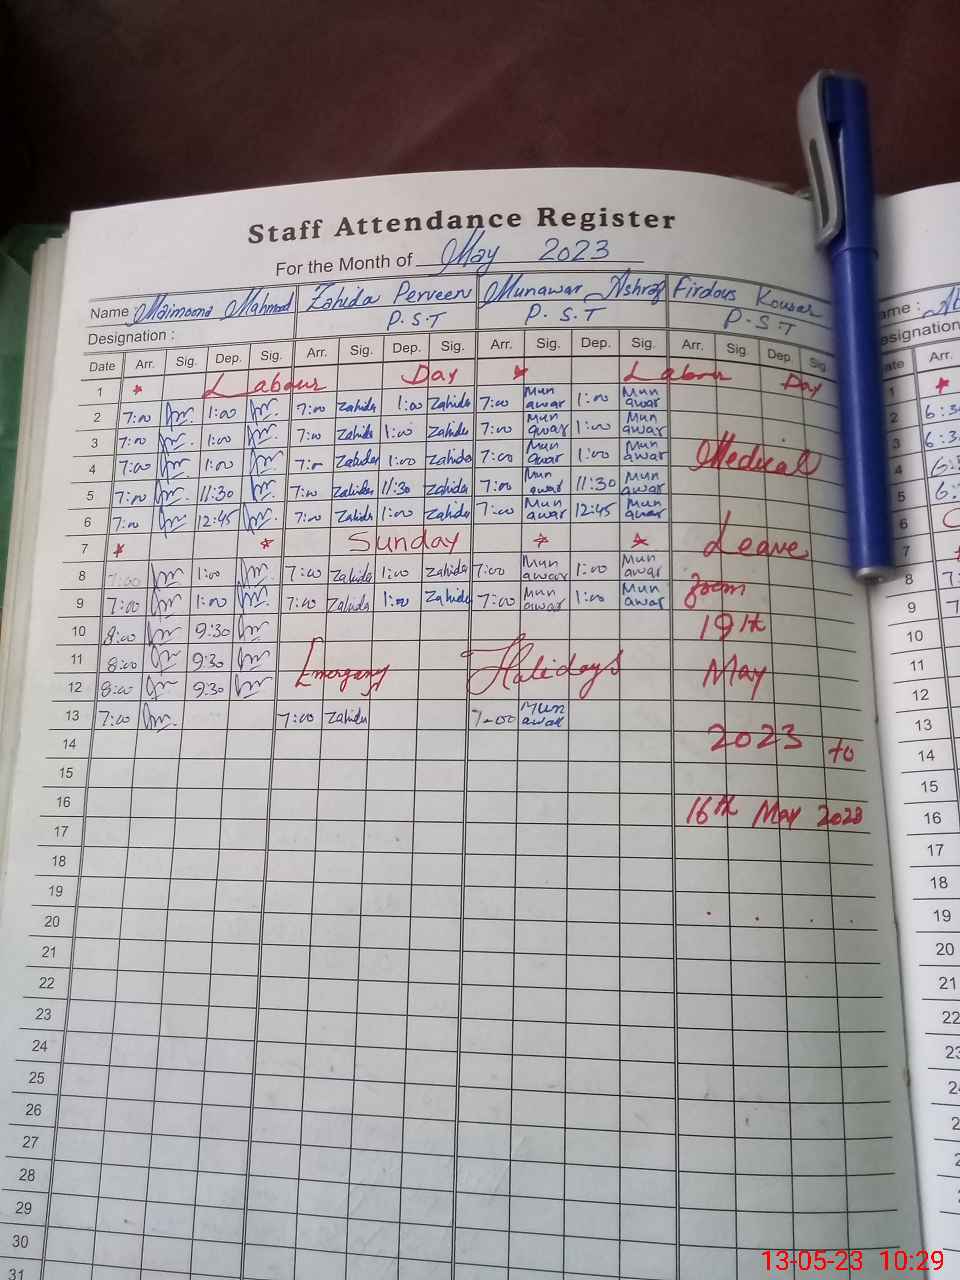 Staff Attendance Register
For the Month of May 2023
Name Maimoona Mahmood Zahida Perveen Munawar Ashraf Firdous Kousar
Designation : P.S.T P.S.T P.S.T
Date Arr. Sig. Dep. Sig. Arr. Sig. Dep. Sig. Arr. Sig. Dep. Sig. Arr. Sig. Dep. Sig
1 Labour Day Labour Day
2 7:00 1:00 7:00 Zahida 1:00 Zahida 7:00 Munawar 1:00 Munawar
3 7:00 1:00 7:00 Zahida 1:00 Zahida 7:00 Munawar 1:00 Munawar
4 7:00 1:00 7:00 Zahida 1:00 Zahida 7:00 Munawar 1:00 Munawar Medical
5 7:00 11:30 7:00 Zahida 11:30 Zahida 7:00 Munawar 11:30 Munawar
6 7:00 12:45 7:00 Zahida 1:00 Zahida 7:00 Munawar 12:45 Munawar
7 Sunday Leave
8 7:00 1:00 7:00 Zahida 1:00 Zahida 7:00 Munawar 1:00 Munawar
9 7:00 1:00 7:00 Zahida 1:00 Zahida 7:00 Munawar 1:00 Munawar from
10 8:00 9:30
11 8:00 9:30 Emergancy Halidays
12 8:00 9:30 May
13 7:00 7:00 Zahida 7-00 Munawar
14 2023 to
15
16 16th May 2023
17
18
19
20
21
22
23
24
25
26
27
28
29
30
31
ame :
esignation
ate Arr.
1
2 6:3
3 6:3
4
5
6
7
8 7:
9 7
10
11
12
13
14
15
16
17
18
19
20
21
22
23
13-05-23 10:29